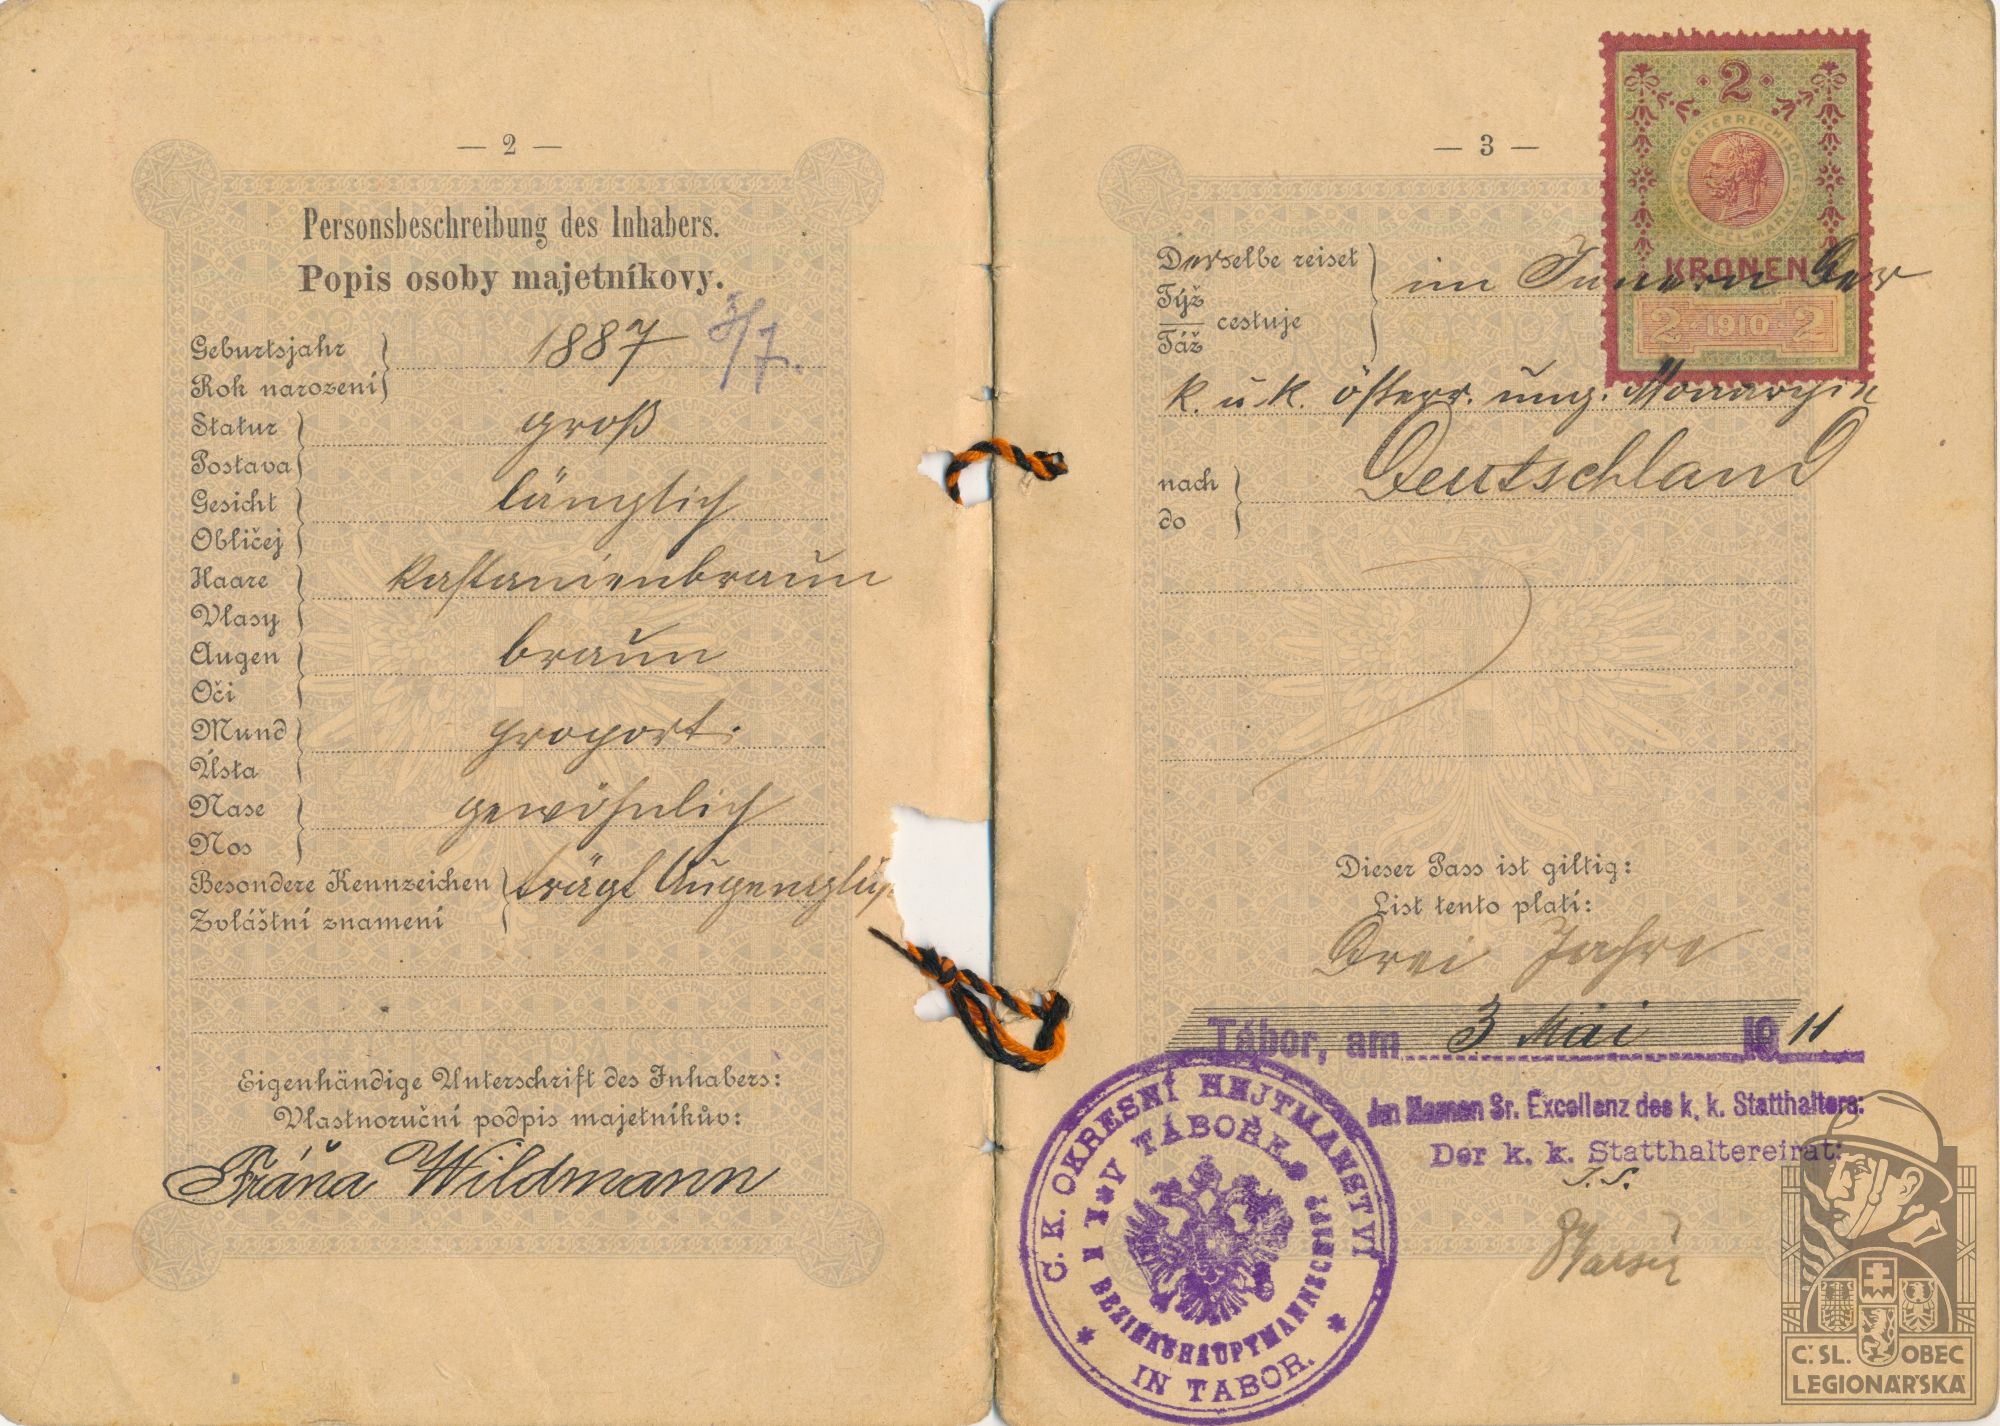 — 2 —
Personsbeschreibung des Inhabers.
Popis osoby majetníkovy.
Geburtsjahr
Rok narození
1887 3/7.
Statur
Postava
groß
Gesicht
Obličej
länglich
Haare
Vlasy
kastanienbraun
Augen
Oči
braun
Mund
Ústa
proport.
Nase
Nos
gewöhnlich
Besondere Kennzeichen
Zvláštní znamení
trägt
Eigenhändige Unterschrift des Inhabers:
Vlastnoruční podpis majetníkův:
Fráňa Wildmann
— 3 —
2
K.K. OESTERREICHISCHE
STEMPEL-MARKE
KRONEN
2 1910 2
Derselbe reiset
Týž
Táž
cestuje
im Innern der
k. u. k. österr. ung. Monarchie
nach
do
Deutschland
Dieser Pass ist giltig:
List tento platí:
Drei Jahre
Tábor, am 3 Mai 1911
Im Namen Sr. Excellenz des k. k. Statthalters:
Der k. k. Statthaltereirat:
C. K. OKRESNÍ HEJTMANSTVÍ
V TÁBOŘE
K. K. BEZIRKSHAUPTMANNSCHAFT
IN TABOR.
Č. SL. OBEC
LEGIONÁŘSKÁ